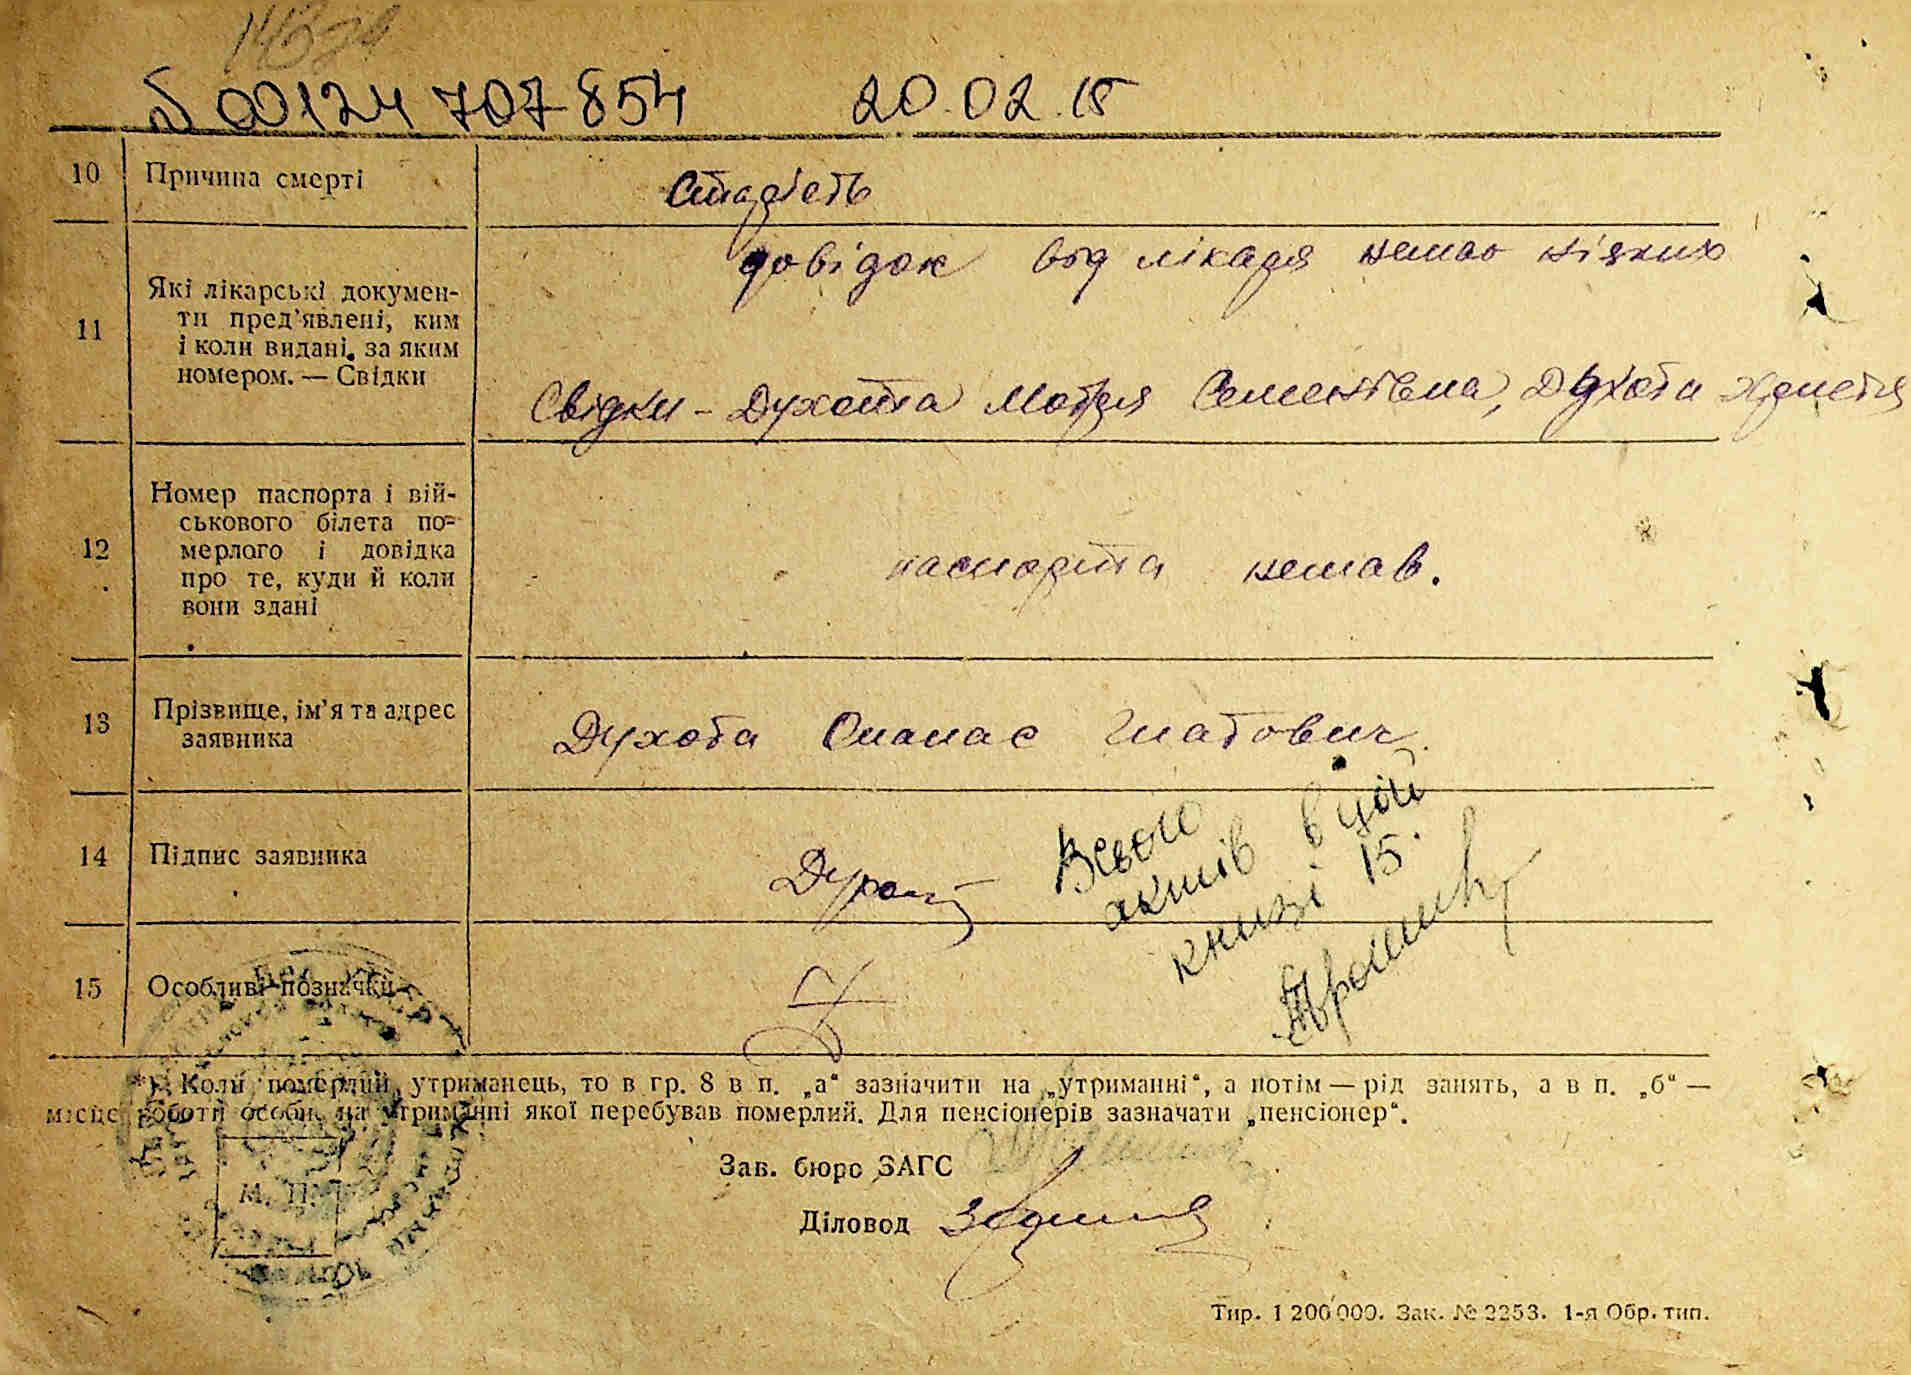 00124 707 854 20.02.15
10 Причина смерті Старість
11 Які лікарські докумен-
ти пред'явлені, ким
і коли видані, за яким
номером. — Свідки
довідок від лікаря немає ніяких
Свідки - Духота Мотря Семенівна, Духота Христя
12 Номер паспорта і вій-
ськового білета по-
мерлого і довідка
про те, куди й коли
вони здані
паспорта немав.
13 Прізвище, ім'я та адрес
заявника
Духота Опанас Гнатович
14 Підпис заявника
Всього
актів в цій
книзі 15.
15 Особливі позначки
*) Коли померлий утриманець, то в гр. 8 в п. „а“ зазначити на „утриманні“, а потім — рід занять, а в п. „б“ —
місце роботи особи, на утриманні якої перебував померлий. Для пенсіонерів зазначати „пенсіонер“.
Зав. бюро ЗАГС
Діловод
М. П.
Тир. 1 200 000. Зак. № 2253. 1-я Обр. тип.